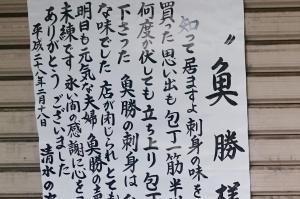 〃魚勝様
知って居ますよ刺身の味を
買った思い出も包丁一筋半
何度が伏しても立ち上り包丁
下さった 魚勝の刺身は
な味でした 店が閉じられとても
明日も元気な夫婦 魚勝の
未練です 永い間の感謝に心を
ありがとうございました
平成二八年二月八日
清水の